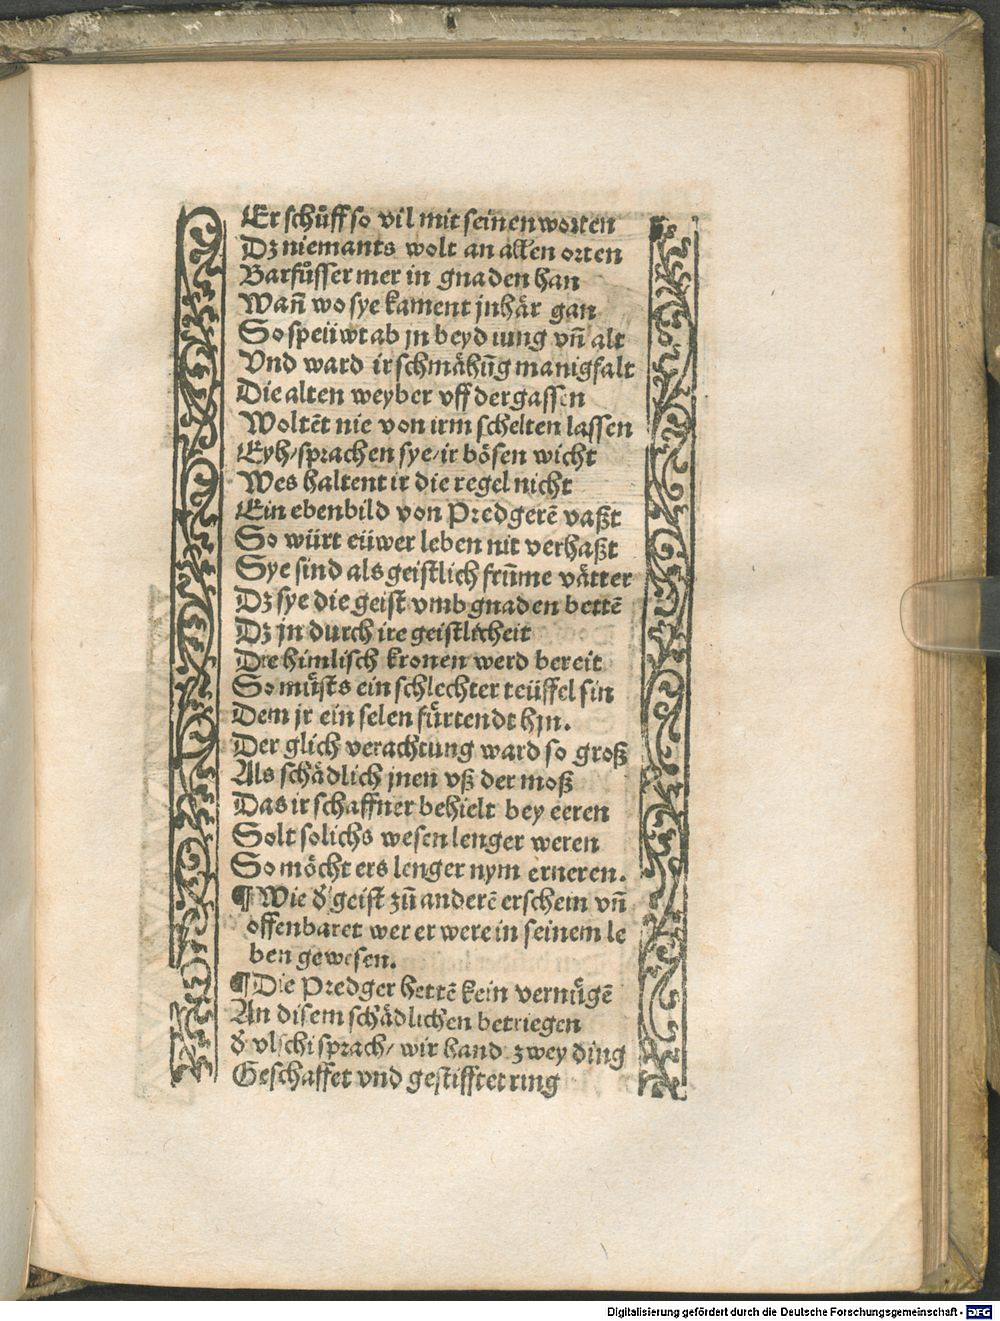 Er schůff so vil mit seinen worten
Dz niemants wolt an allen orten
Barfůsser mer in gnaden han
Wañ wo sye kament jnhär gan
So speüwt ab jn beyd iung vñ alt
Vnd ward ir schmähũg manigfalt
Die alten weyber vff der gassen
Woltẽt nie von irm schelten lassen
Eyh/sprachen sye/ir bösen wicht
Wes haltent ir die regel nicht
Ein ebenbild von Predgerẽ vaßt
So würt eüwer leben nit verhaßt
Sye sind als geistlich frũme vätter
Dz sye die geist vmb gnaden bettẽ
Dz jn durch ire geistlicheit
Die himlisch kronen werd bereit
So můsts ein schlechter teüffel sin
Dem jr ein selen fürtendt hjn.
Der glich verachtung ward so groß
Als schädlich jnen vß der moß
Das ir schaffner behielt bey eeren
Solt solichs wesen lenger weren
So möcht ers lenger nym erneren.
¶ Wie d̕ geist zů anderẽ erschein vñ
offenbaret wer er were in seinem le
ben gewesen.
¶ Die Predger hettẽ kein vernügẽ
An disem schädlichen betriegen
d̕ vlschi sprach/ wir hand zwey ding
Geschaffet vnd gestifftet ring
Digitalisierung gefördert durch die Deutsche Forschungsgemeinschaft - DFG